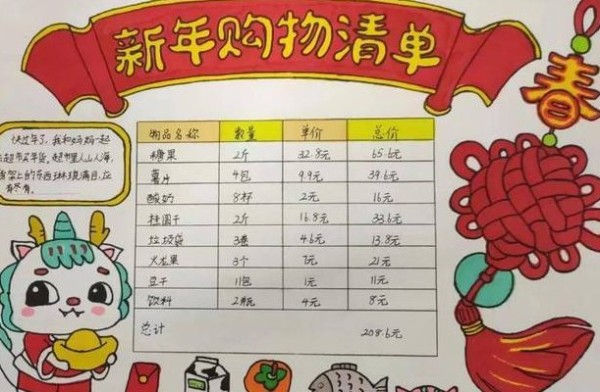 新年购物清单
春
快过年了,我和妈妈一起
去超市买年货,超市里人山人海,
货架上的东西琳琅满目,应
有尽有。
物品名称 数量 单价 总价
糖果 2斤 32.8元 65.6元
薯片 4包 9.9元 39.6元
酸奶 8杯 2元 16元
桂圆干 2斤 16.8元 33.6元
垃圾袋 3卷 4.6元 13.8元
火龙果 3个 7元 21元
豆干 11包 1元 11元
饮料 2瓶 4元 8元
总计 208.6元